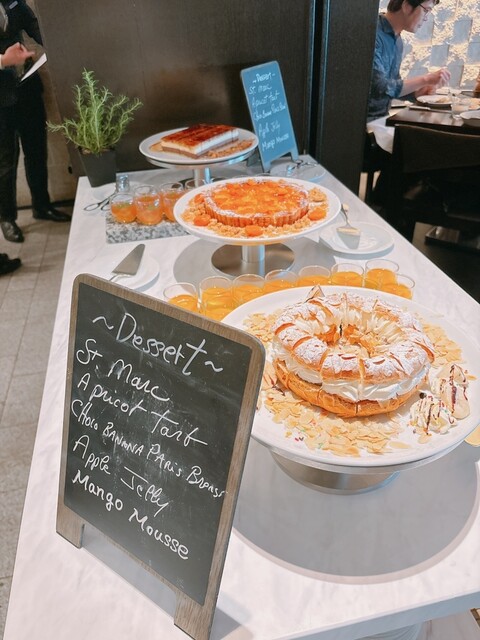 ~Dessert~
St Marc
Apricot tart
Choco BANANA PARis Brest
Apple Jelly
Mango Mousse
~Dessert~
St. Marc
Apricot tart
Apple Jelly
Mango Mousse